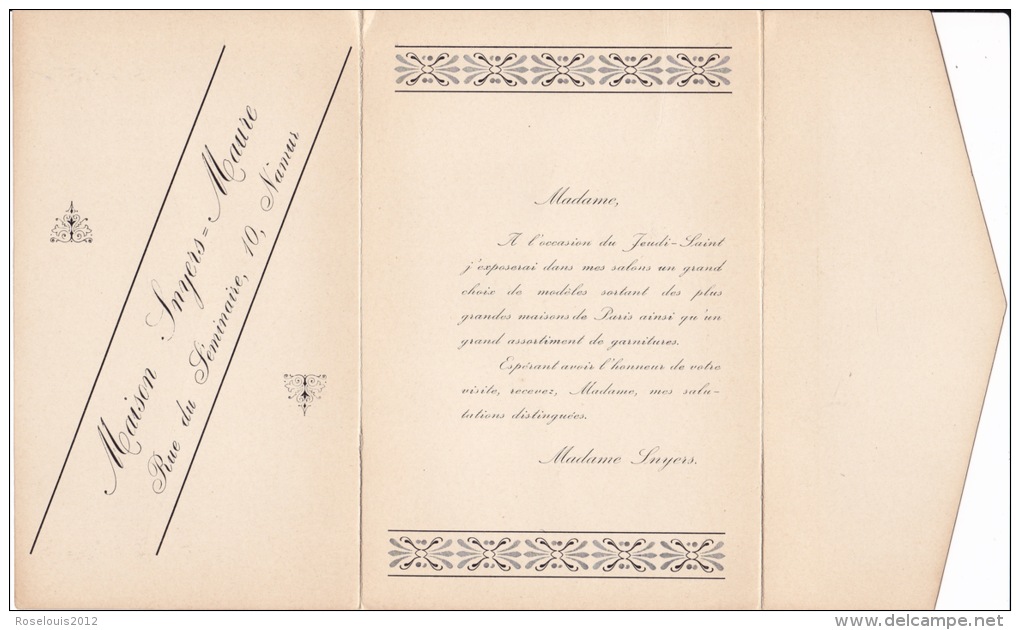 Maison Snyers=Maure
Rue du Séminaire, 10, Namur
Madame,
A l'occasion du Jeudi-Saint
j'exposerai dans mes salons un grand
choix de modèles sortant des plus
grandes maisons de Paris ainsi qu'un
grand assortiment de garnitures.
Espérant avoir l'honneur de votre
visite, recevez, Madame, mes salu-
tations distinguées.
Madame Snyers.
Roselouis2012
delcampe.net